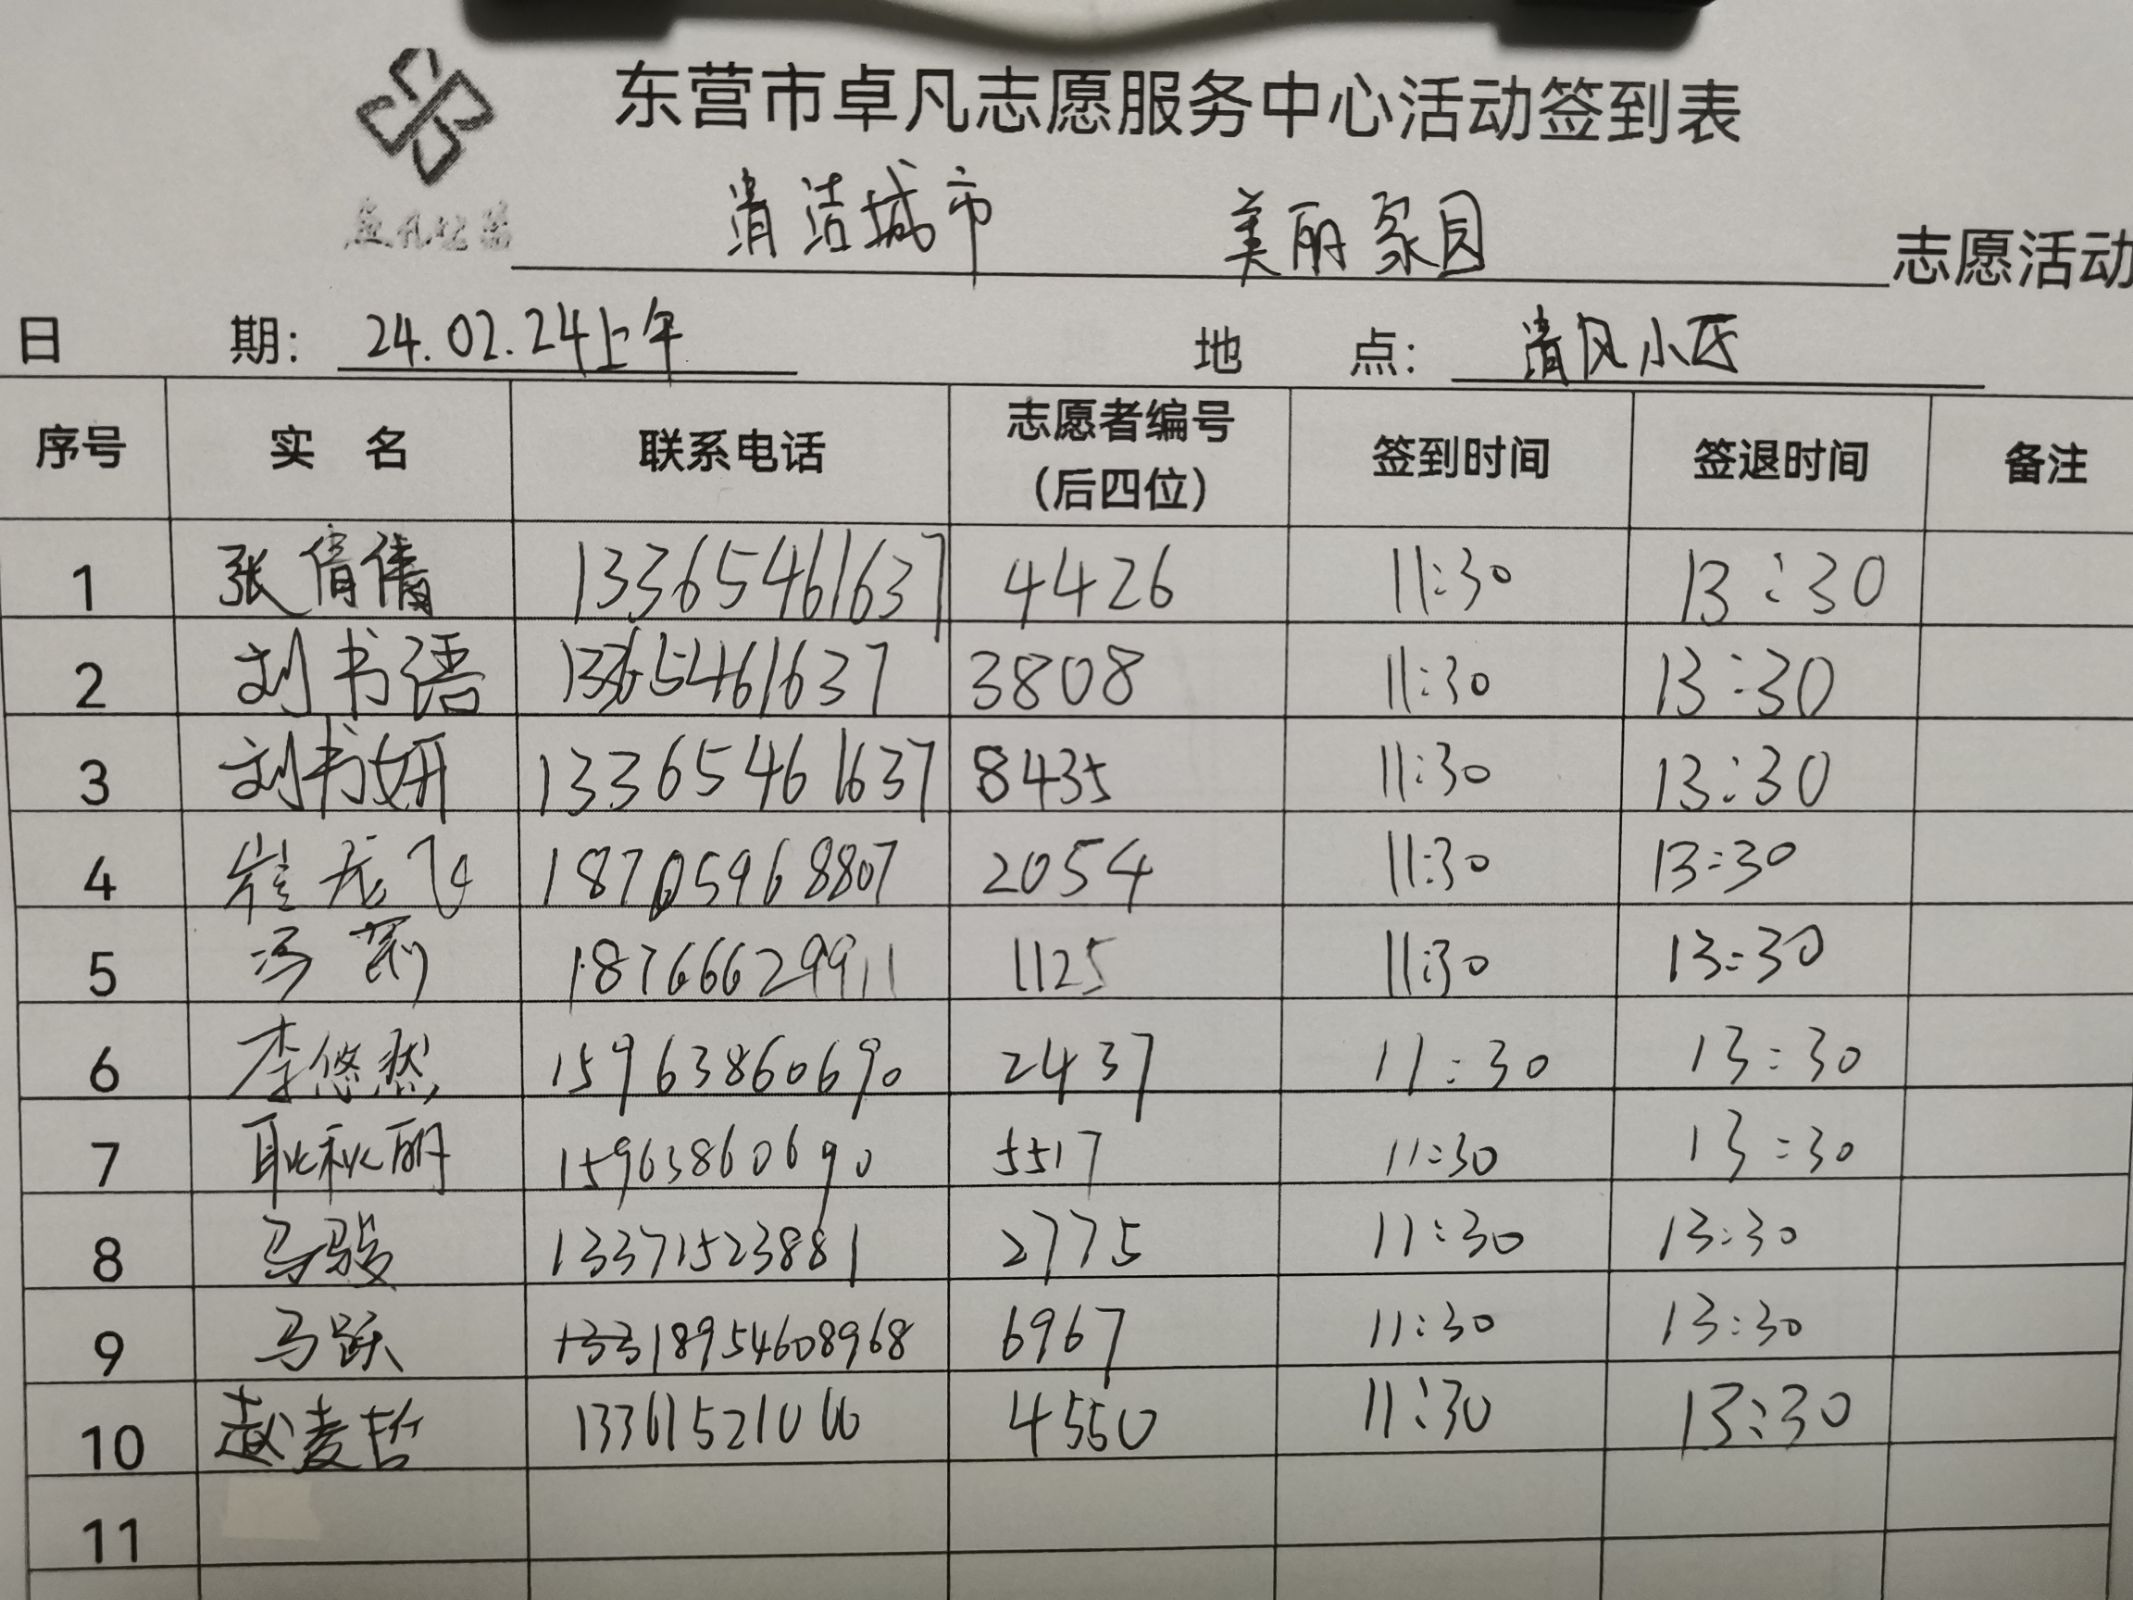 东营市卓凡志愿服务中心活动签到表
清洁城市 美丽家园 志愿活动
日 期: 24.02.24上午 地 点: 清风小区
序号 实 名 联系电话 志愿者编号（后四位） 签到时间 签退时间 备注
1 张倩倩 13365461637 4426 11:30 13:30
2 刘书语 13365461637 3808 11:30 13:30
3 刘书妍 13365461637 8435 11:30 13:30
4 崔龙飞 18705968807 2054 11:30 13:30
5 冯莉 18766629911 1125 11:30 13:30
6 李悠然 15963860690 2437 11:30 13:30
7 耿秋丽 15963860690 5517 11:30 13:30
8 马骏 13371523881 2775 11:30 13:30
9 马跃 18954608968 6967 11:30 13:30
10 赵麦哲 4550 11:30 13:30
11